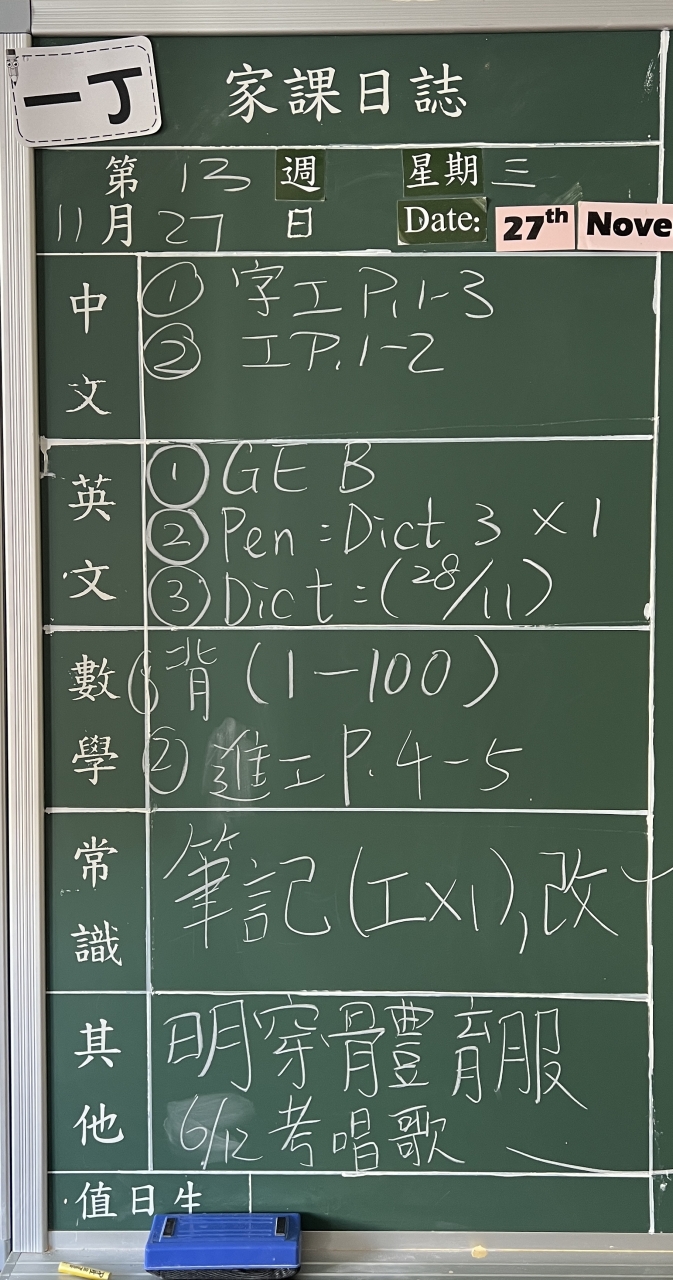 一丁
家課日誌
第 13 週 星期 三
11月 27 日 Date: 27th Nove
中文
① 字工 P.1-3
② 工 P.1-2
英文
① GE B
② Pen : Dict 3 × 1
③ Dict : (28/11)
數學
① 背 (1-100)
② 進工 P. 4-5
常識
筆記(工×1),改
其他
明穿體育服
6/12 考唱歌
值日生